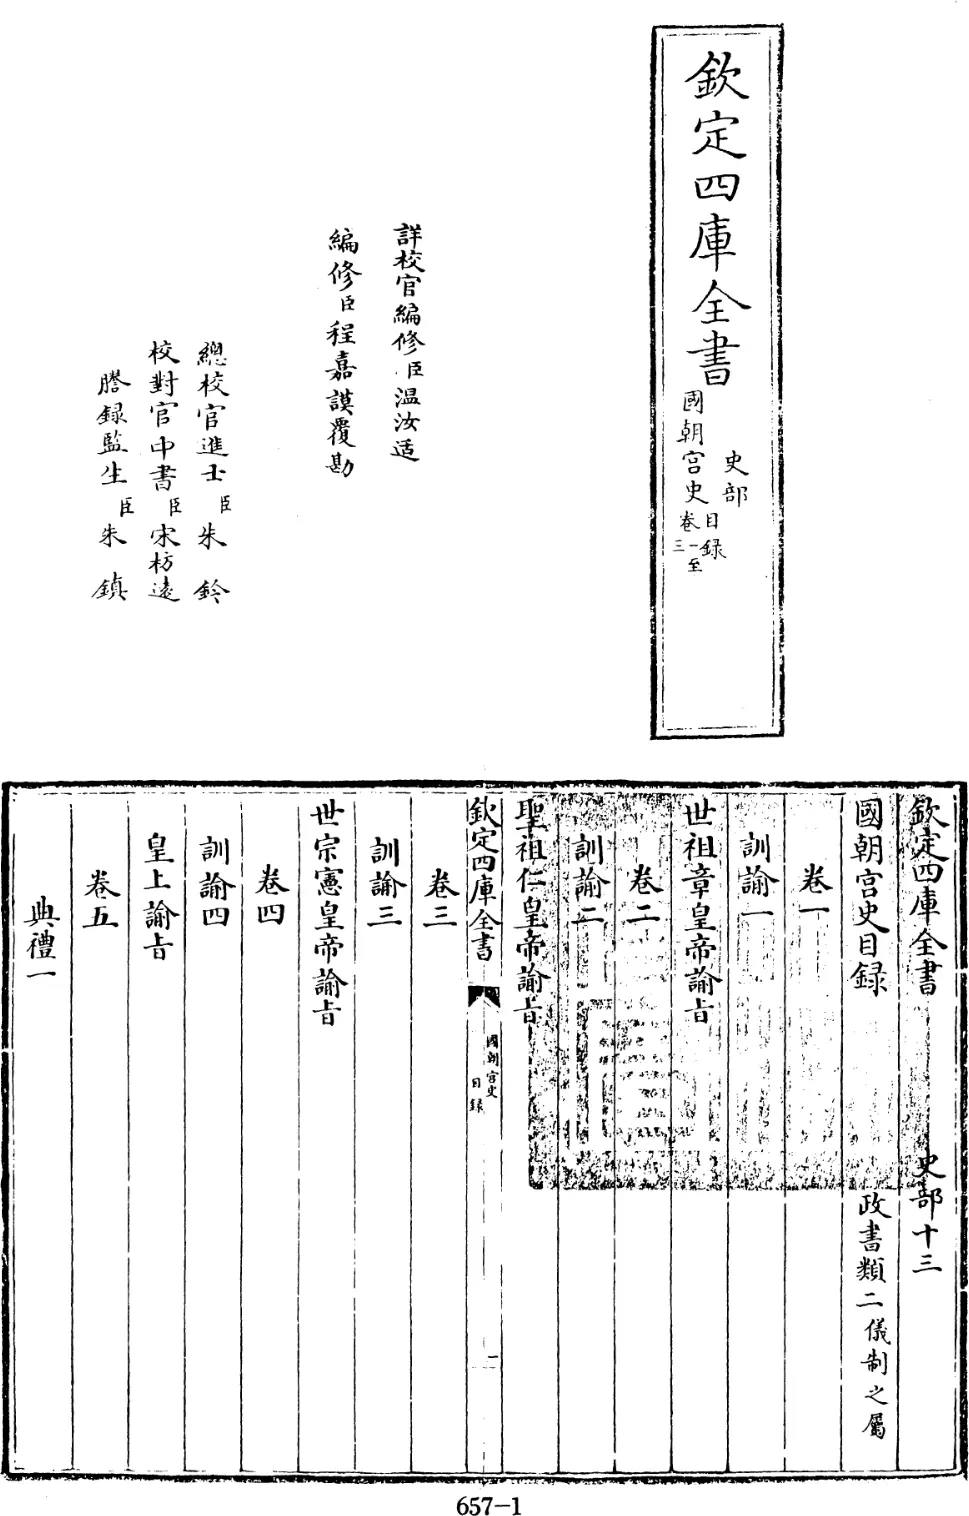 欽定四庫全書
史部
國朝宫史目録
卷一至三
詳校官編修臣温汝适
編修臣程嘉謨覆勘
總校官進士臣朱鈐
校對官中書臣宋枋遠
謄録監生臣朱鎮
欽定四庫全書 史部十三
國朝宫史目録 政書類二儀制之屬
卷一
訓諭一
世祖章皇帝諭旨
卷二
訓諭二
聖祖仁皇帝諭旨
欽定四庫全書 國朝宫史目録 一
卷三
訓諭三
世宗憲皇帝諭旨
卷四
訓諭四
皇上諭旨
卷五
典禮一
657-1